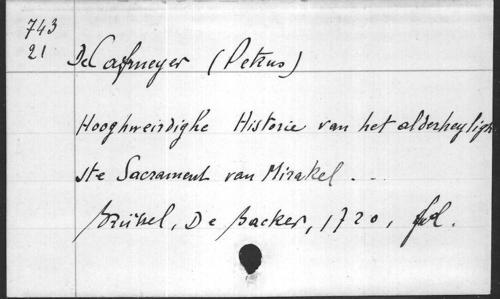 743
21
De Cafmeyer (Petrus)
Hooghweirdighe Historie van het alderheylig
ste Sacrament van Mirakel . . .
Brüssel, De Backer, 1720, fol.